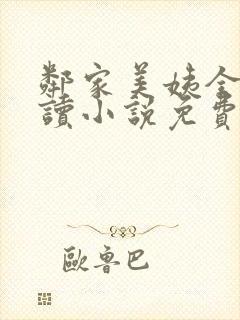 鄰家美姨全
讀小説免費
歐魯巴